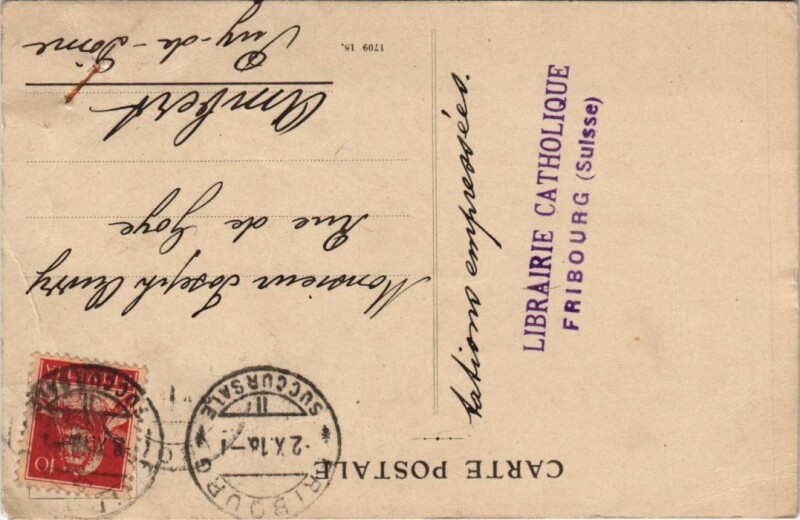 CARTE POSTALE
tations empressées.
LIBRAIRIE CATHOLIQUE
FRIBOURG (Suisse)
FRIBOURG
-2.X.18.-1
SUCCURSALE
II
10
Monsieur Joseph
Rue de Goye
Ambert
Puy-de-Dôme
1709 18.